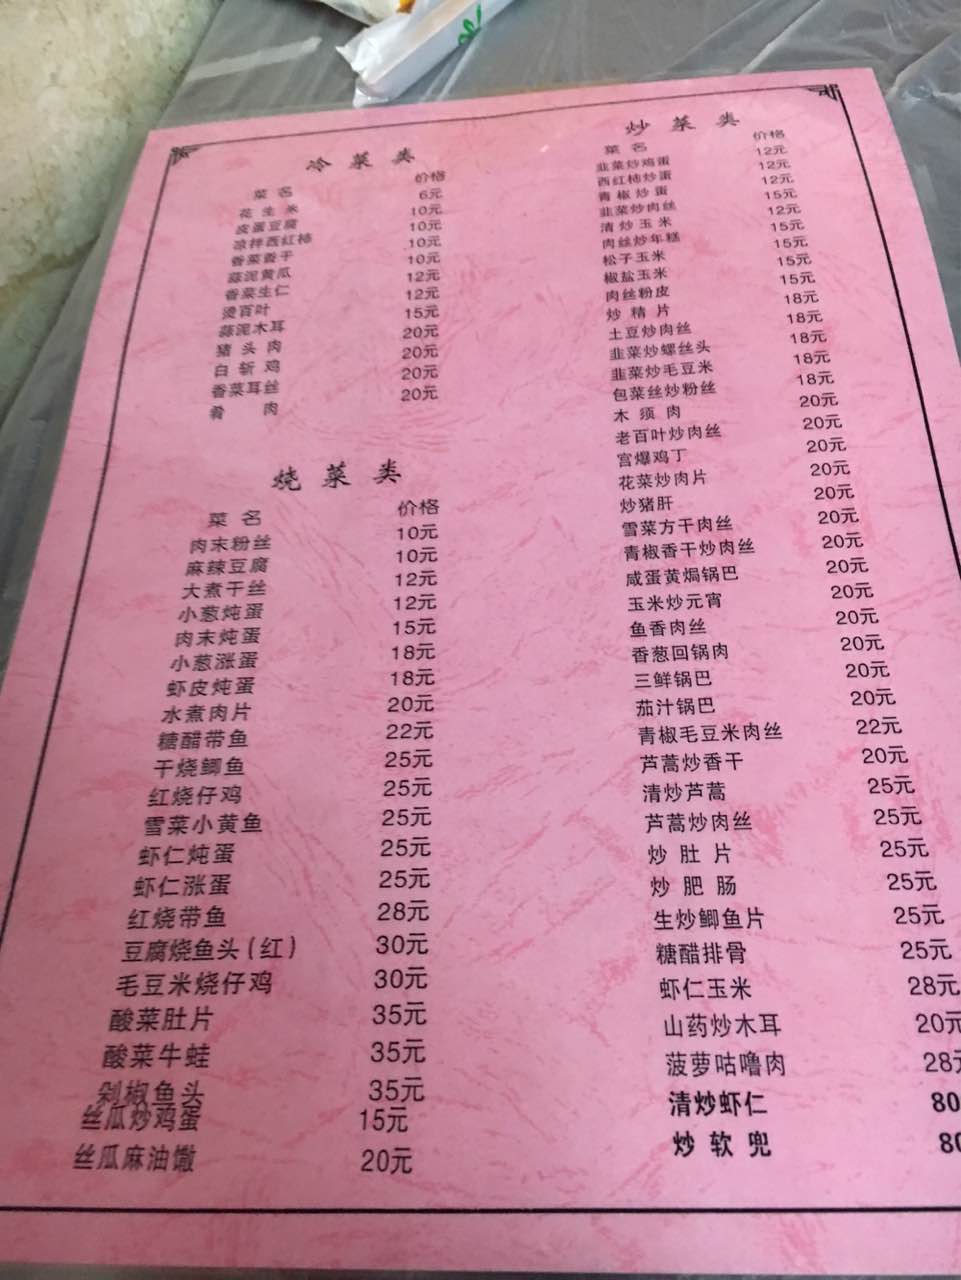 冷菜类
菜名 价格
花生米 6元
皮蛋豆腐 10元
凉拌西红柿 10元
香菜香干 10元
蒜泥黄瓜 10元
香菜生仁 12元
烫百叶 12元
蒜泥木耳 15元
猪头肉 20元
白斩鸡 20元
香菜耳丝 20元
肴肉 20元
烧菜类
菜名 价格
肉末粉丝 10元
麻辣豆腐 10元
大煮干丝 12元
小葱炖蛋 12元
肉末炖蛋 15元
小葱涨蛋 18元
虾皮炖蛋 18元
水煮肉片 20元
糖醋带鱼 22元
干烧鲫鱼 25元
红烧仔鸡 25元
雪菜小黄鱼 25元
虾仁炖蛋 25元
虾仁涨蛋 25元
红烧带鱼 28元
豆腐烧鱼头(红) 30元
毛豆米烧仔鸡 30元
酸菜肚片 35元
酸菜牛蛙 35元
剁椒鱼头 35元
丝瓜炒鸡蛋 15元
丝瓜麻油馓 20元
炒菜类
菜名 价格
韭菜炒鸡蛋 12元
西红柿炒蛋 12元
青椒炒蛋 12元
韭菜炒肉丝 15元
清炒玉米 12元
肉丝炒年糕 15元
松子玉米 15元
椒盐玉米 15元
肉丝粉皮 15元
炒精片 18元
土豆炒肉丝 18元
韭菜炒螺丝头 18元
韭菜炒毛豆米 18元
包菜丝炒粉丝 18元
木须肉 20元
老百叶炒肉丝 20元
宫爆鸡丁 20元
花菜炒肉片 20元
炒猪肝 20元
雪菜方干肉丝 20元
青椒香干炒肉丝 20元
咸蛋黄焗锅巴 20元
玉米炒元宵 20元
鱼香肉丝 20元
香葱回锅肉 20元
三鲜锅巴 20元
茄汁锅巴 20元
青椒毛豆米肉丝 22元
芦蒿炒香干 20元
清炒芦蒿 25元
芦蒿炒肉丝 25元
炒肚片 25元
炒肥肠 25元
生炒鲫鱼片 25元
糖醋排骨 25元
虾仁玉米 28元
山药炒木耳 20元
菠萝咕噜肉 28元
清炒虾仁 80
炒软兜 80